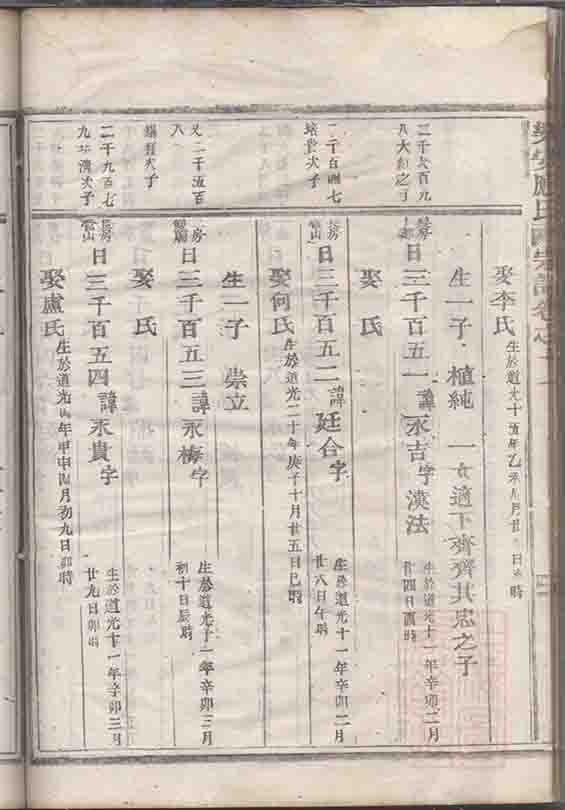 娶李氏 生於道光十五年乙未 月廿 日 時
生一子 植純 一女適下齊齊其忠之子
二千六百九
八大 之子
長房
日三千百五一 諱永吉字漢法 生於道光十一年辛卯二月
廿四日酉時
娶 氏
二千百 七
培 次子
長房
山
日三千百五二 諱廷合字 生於道光十一年辛卯二月
廿八日午時
娶何氏 生於道光二十年庚子十月廿五日巳時
生一子 崇立
又二千五百
八
房
日三千百五三 諱永梅字 生於道光十一年辛卯三月
初十日辰時
娶 氏
次子
二千九百七
九 濟次子
長房
山
日三千百五四 諱永貴字 生於道光十一年辛卯三月
廿九日卯時
娶盧氏 生於道光四年甲申四月初九日卯時
盧氏 宗譜卷之